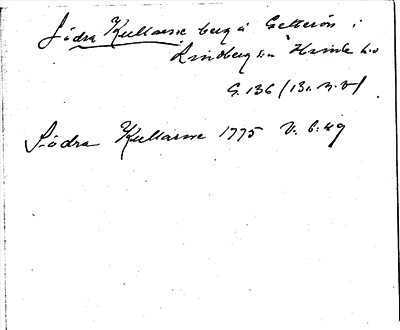 Södra Kullarne berg å Getterön i
Lindberg sn Himle hd
G. 136 (13n. n. v)
Södra Kullarne 1775 V. b. 49